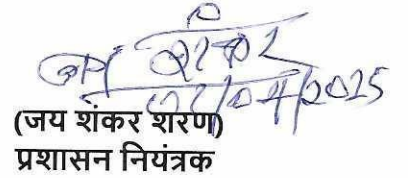 जय शंकर
/04/2025
(जय शंकर शरण)
प्रशासन नियंत्रक